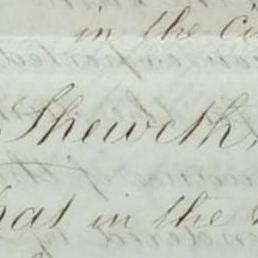 in the
Sheweth,
hat in the